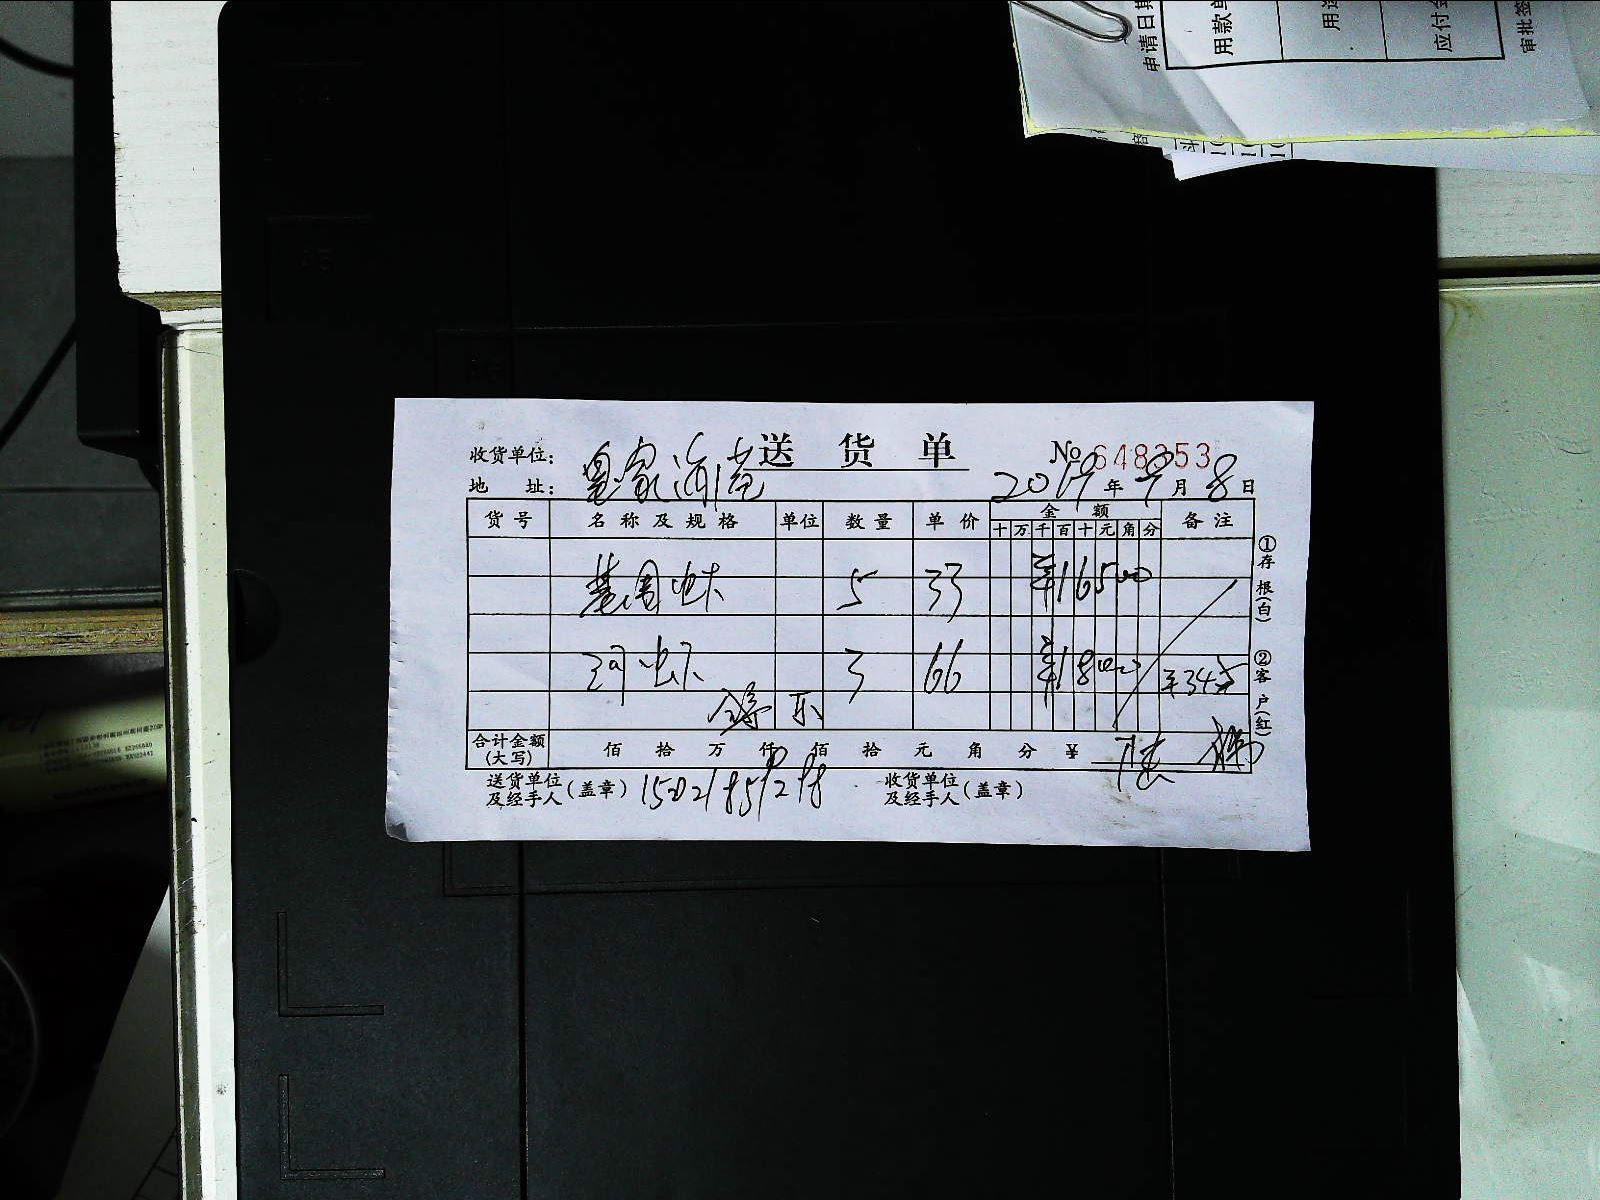 送货单
No 648353
收货单位:
地 址:
2019年9月8日
货号 名称及规格 单位 数量 单价 金额 备注
十 万 千 百 十 元 角 分
基围虾 5 33 ¥16500
河虾 3 66 ¥18000 ¥345
合计金额(大写) 佰 拾 万 仟 佰 拾 元 角 分 ¥
送货单位及经手人(盖章) 15021859298
收货单位及经手人(盖章)
①存根(白)
②客户(红)
申请日期
用款单
用途
应付金
审批签